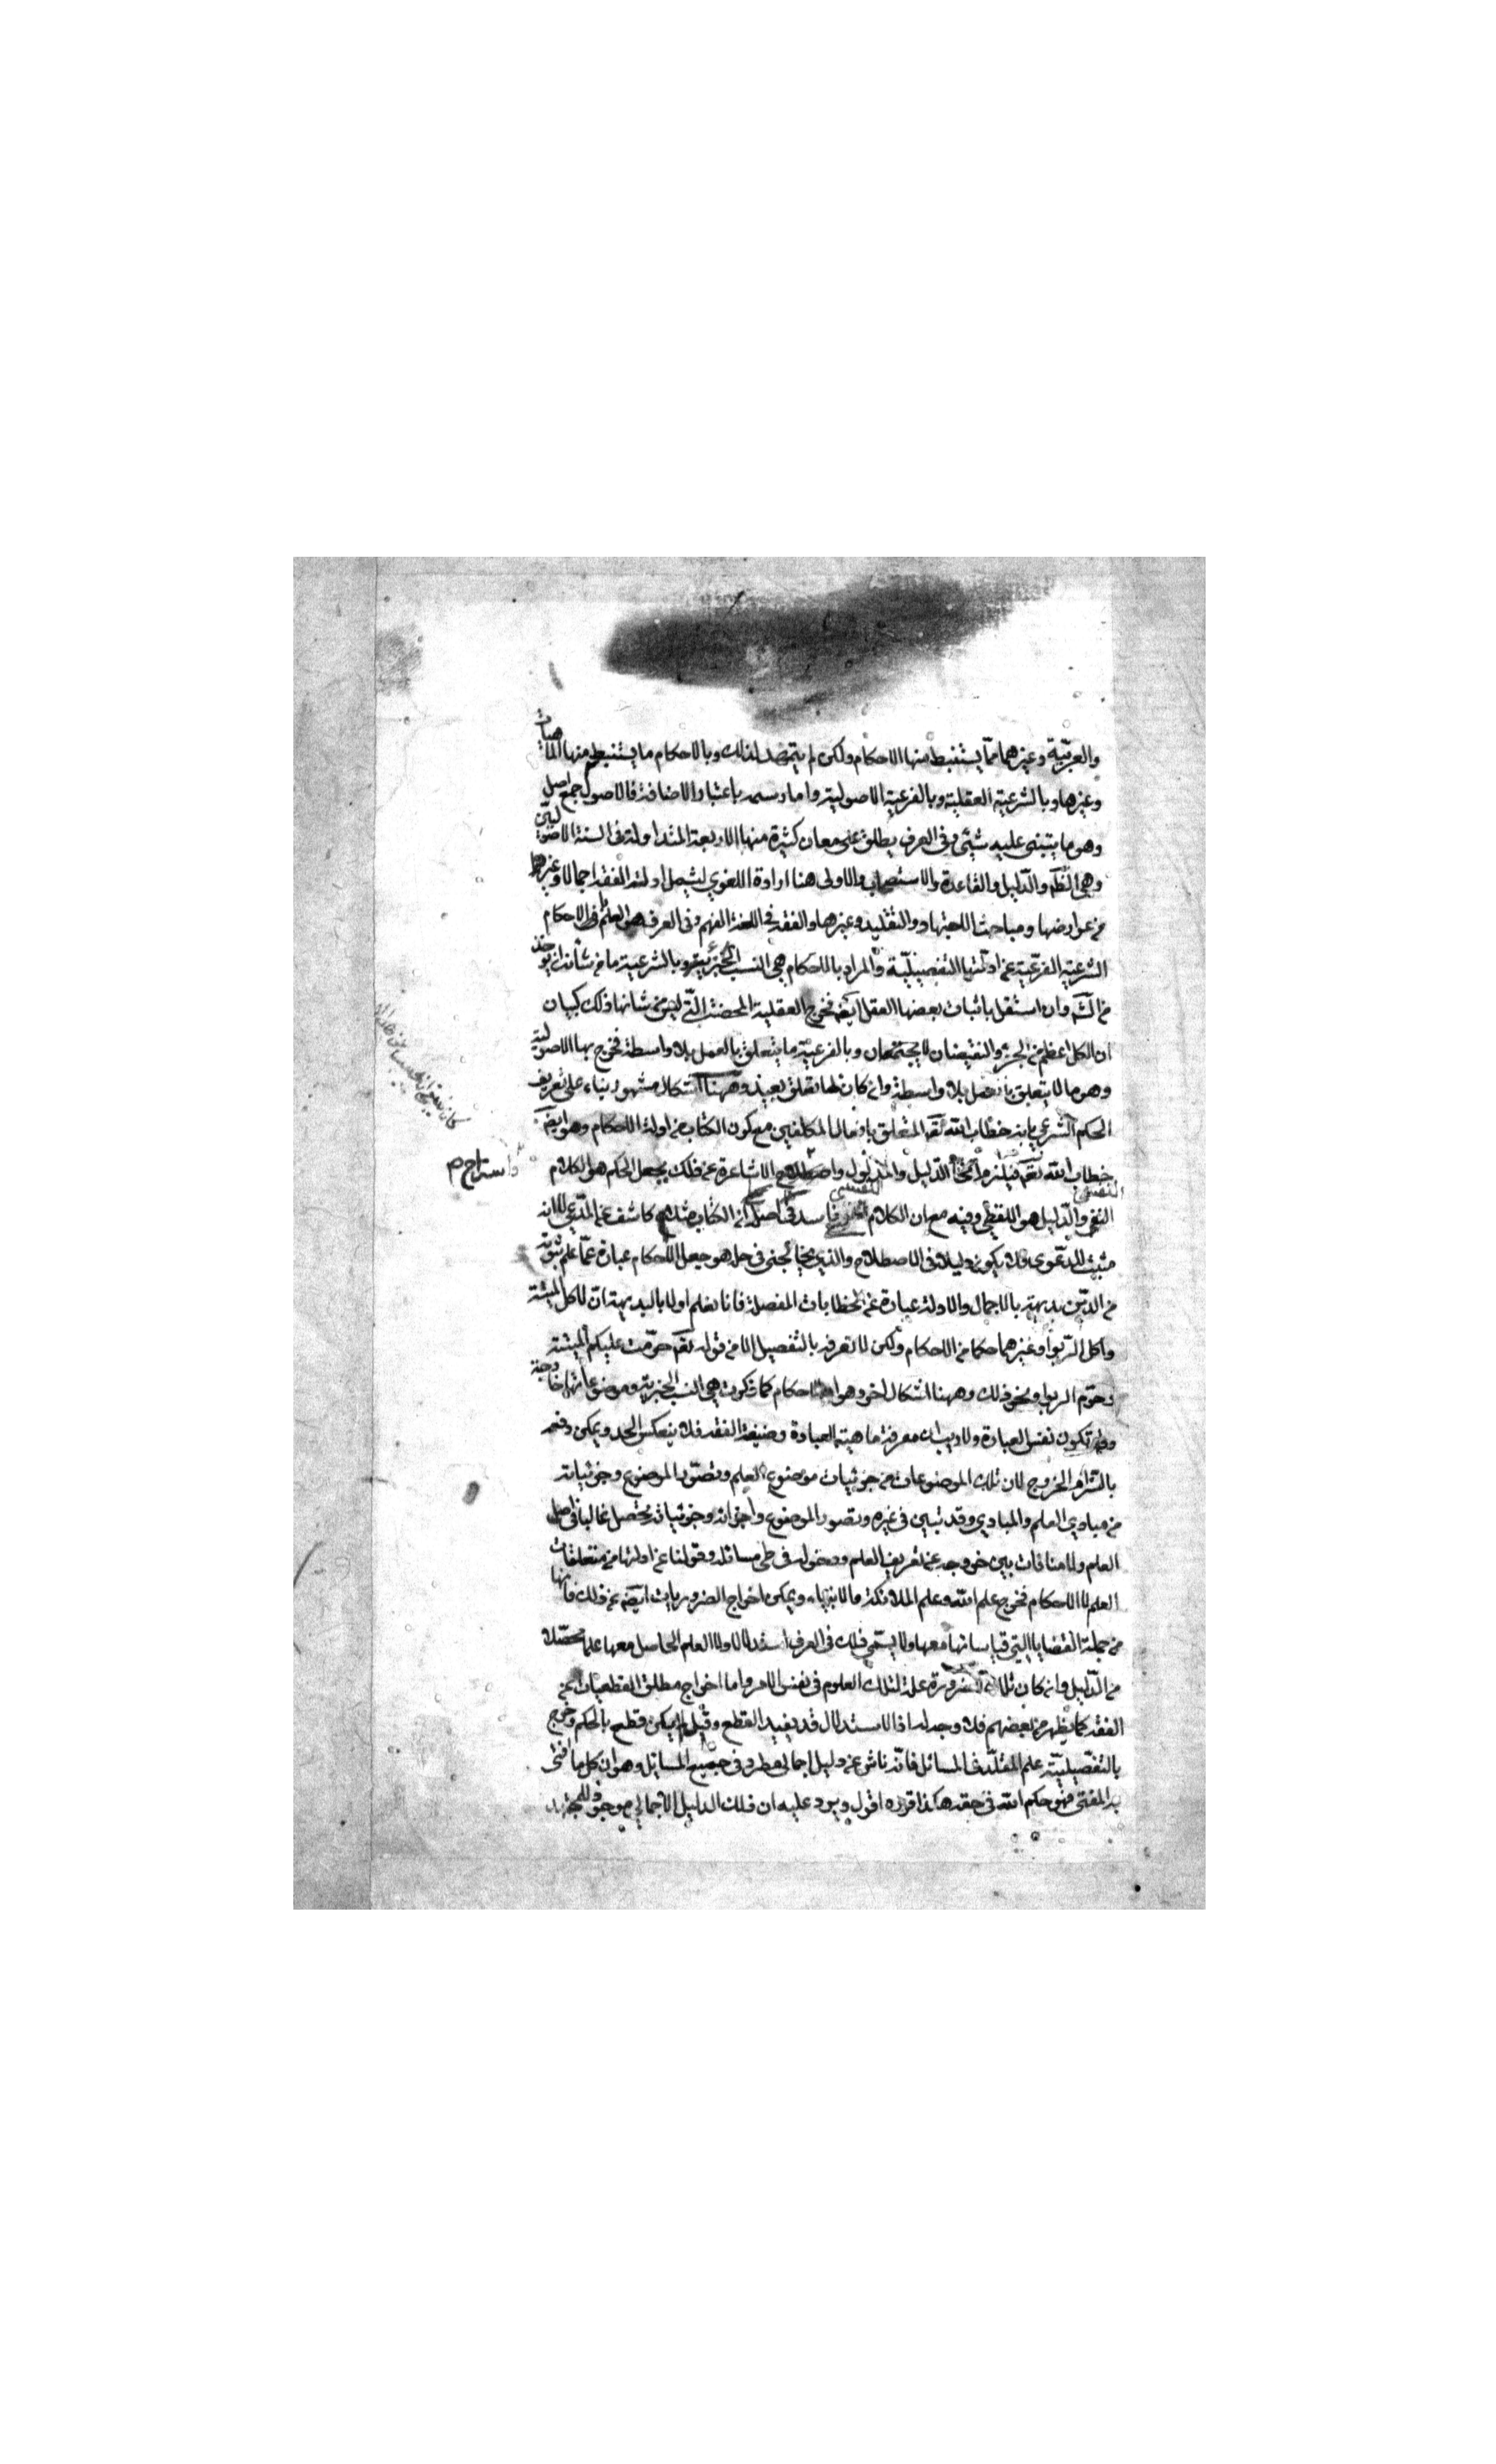 والعربيّة وغيرهما ممّا يستنبط منها الاحكام ولكن لم يتمهد لذلك وبالاحكام ما يستنبط منها الماهيات
وغيرها وبالشرعية العقلية وبالفرعية الاصولية واما رسمه باعتبار الاضافة فالاصول جمع اصل
وهو ما يبتنى عليه شيئى وفى العرف يطلق على معان كثيرة منها الاربعة المتداولة فى السنة الاصوليّين
وهى الظّم والدّليل والقاعدة والاستصحاب والاولى هنا ارادة اللغوي ليشمل ادلة الفقه اجمالا وغيرها
من عوارضها ومباحث الاجتهاد والتقليد وغيرها والفقه فى اللغة الفهم وفى العرف هو العلم بالاحكام
الشرعيّة الفرعيّة عن ادلّتها التفصيليّة والمراد بالاحكام هى النسب الجزئيّة وبالشرعية ما من شأنه ان يؤخذ
من الشّم وان استقل باثبات بعضها العقل ايضم فخرج العقلية المحضة الّتى ليس من شانها ذلك كبيان
ان الكل اعظم من الجزء والنقيضان لا يجتمعان وبالفرعيّة ما يتعلق بالعمل بلا واسطة فخرج بها الاصولية
وهو ما لا يتعلق بالعمل بلا واسطة وان كان لها تعلق بعيد وههنا اشكال مشهور بناء على تعريف
الحكم الشرعي بانه خطاب الله تعم المتعلق بافعال المكلفين مع كون الكتاب من ادلة الاحكام وهو ايضم
خطاب الله تعم فيلزم اتحاد الدليل والمدلول واصطلاح الاشاعرة عن ذلك بجعل الحكم هو الكلام
النفسى والدّليل هو اللفظي وفيه مع ان الكلام النفسى فاسد فى اصله ان الكتاب مثلا كاشف عن المدّعى لا انه
مثبت للدّعوى فلا يكون دليلا فى الاصطلاح والذي يخالجنى فى حله هو جعل الاحكام عبارة عمّا علم ثبوته
من الدّين بديهة بالاجمال والادلة عبارة عن الخطابات المفصلة فانا نعلم اولا بالبديهة انّ لاكل الميتة
واكل الرّبوا وغيرهما حكما من الاحكام ولكن لا نعرفه بالتفصيل الا من قوله تعم حرّمت عليكم الميتة
وحرّم الربوا ونحو ذلك وههنا اشكال اخر وهو ان الاحكام كما ذكرت هى النسب الجزئية وموضوعاتها خارجة
وقد تكون نفس العبادة ولا ريب ان معرفة ماهية العبادة وظيفة الفقه فلا ينعكس الحد ويمكن دفعه
بالتزام الخروج لان تلك الموضوعات من جزئيات موضوع العلم وتصوّر الموضوع وجزئياته
من مبادي العلم والمبادي وقد تبين فى غيره وتصور الموضوع واجزائه وجزئياته يحصل غالبا فى اصل
العلم ولا منافات بين خروجه عن تعريف العلم ودخوله فى طى مسائله وقولنا عن ادلتها من متعلقات
العلم لا الاحكام فخرج علم الله وعلم الملائكة والانبياء ويمكن اخراج الضروريات ايضم عن ذلك فانها
من جملة القضايا التى قياساتها معها ولا يسمّى ذلك فى العرف استدلالا ولا العلم الحاصل معها علما محصّلا
من الدّليل وان كان تلك الضرورة علة لتلك العلوم فى نفس الامر واما اخراج مطلق القطعيات عن
الفقه كما يظهر من بعضهم فلا وجه له اذ الاستدلال قد يفيد القطع وقبله لم يكن قطع بالحكم وخرج
بالتفصيليّة علم المقلّد فى المسائل فانّه ناش عن دليل اجمالي مطرد فى جميع المسايل وهو ان كل ما افتى
به المفتى فهو حكم الله فى حقه هكذا قرره اقول ويرد عليه ان ذلك الدليل الاجمالي موجود للمجتهد